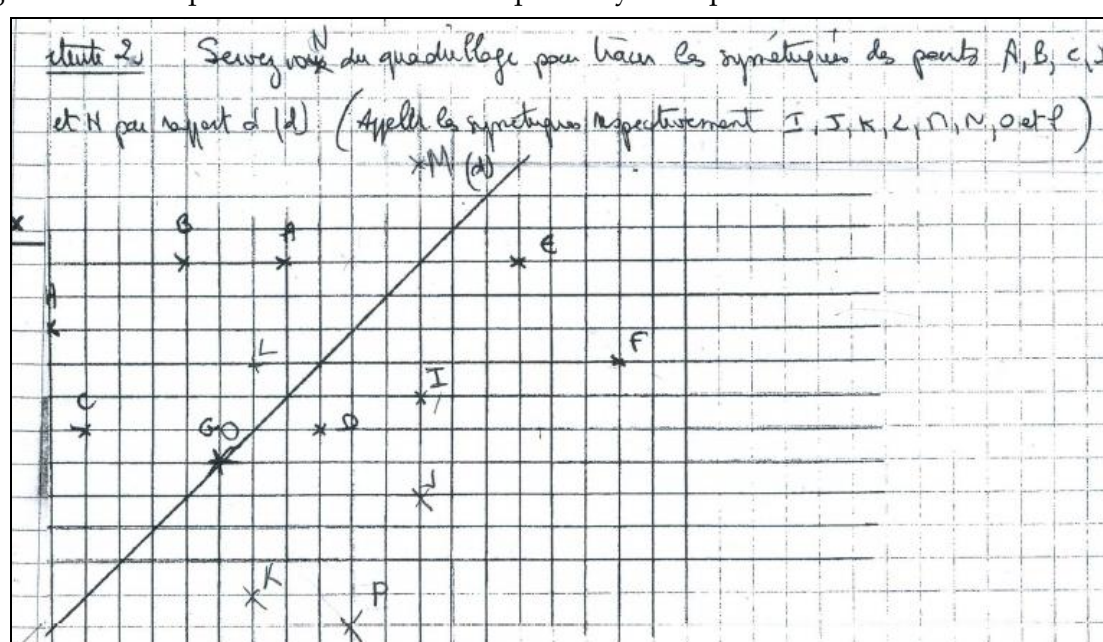 N
Servez vous du quadrillage pour tracer les symétriques des points A, B, C,
et H par rapport à (d) (Appeller les symétriques respectivement I, J, K, L, M, N, O et P)
M (d)
B A E
H
L F
C I
G O D
J
K P